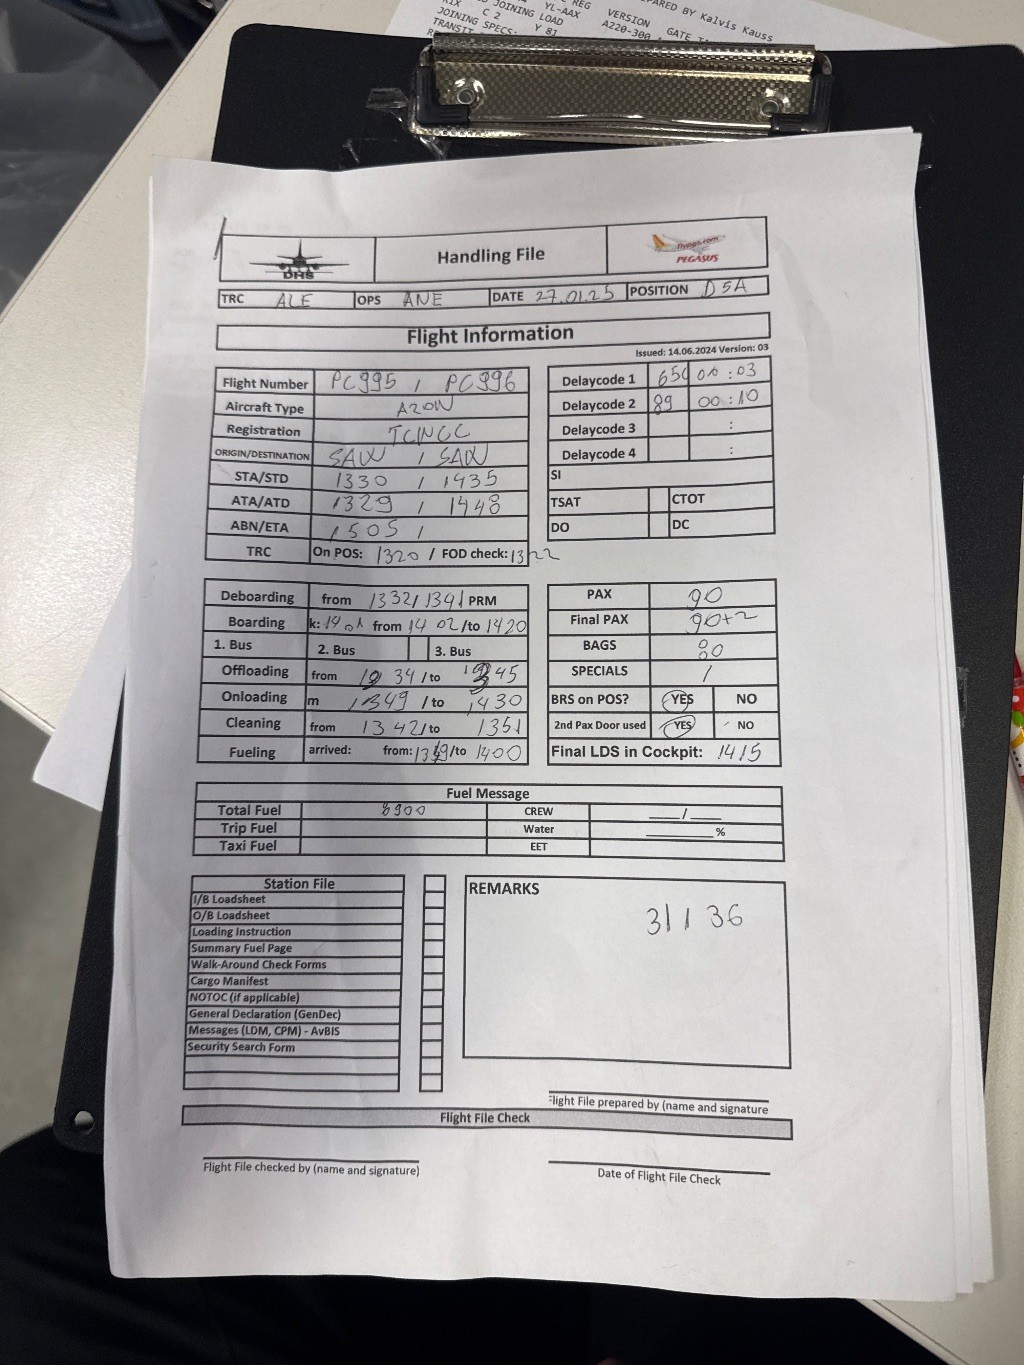 PARED BY Kalvis Kauss
REG VERSION GATE
RIX YL-AAX A220-300
JOINING LOAD
C 2 Y 81
JOINING SPECS:
TRANSIT
DHS Handling File flypgs.com PEGASUS
TRC ALE OPS ANE DATE 27.01.25 POSITION D5A
Flight Information
Issued: 14.06.2024 Version: 03
Flight Number PC995 / PC996 Delaycode 1 65 00:03
Aircraft Type A20N Delaycode 2 89 00:10
Registration TCNCC Delaycode 3 :
ORIGIN/DESTINATION SAW / SAW Delaycode 4 :
STA/STD 1330 / 1435 SI
ATA/ATD 1329 / 1448 TSAT CTOT
ABN/ETA 1505 / DO DC
TRC On POS: 1320 / FOD check: 1322
Deboarding from 1332/ 1341 PRM PAX 90
Boarding k: from 14 02/to 1420 Final PAX 90+2
1. Bus 2. Bus 3. Bus BAGS 80
Offloading from 34 /to 45 SPECIALS /
Onloading m 1349 /to 1430 BRS on POS? YES NO
Cleaning from 13 42/to 1351 2nd Pax Door used YES NO
Fueling arrived: from: /to 1400 Final LDS in Cockpit: 1415
Fuel Message
Total Fuel 8900 CREW ___/___
Trip Fuel Water ______%
Taxi Fuel EET
Station File REMARKS
I/B Loadsheet 31 / 36
O/B Loadsheet
Loading Instruction
Summary Fuel Page
Walk-Around Check Forms
Cargo Manifest
NOTOC (if applicable)
General Declaration (GenDec)
Messages (LDM, CPM) - AvBIS
Security Search Form
Flight File prepared by (name and signature
Flight File Check
Flight File checked by (name and signature) Date of Flight File Check